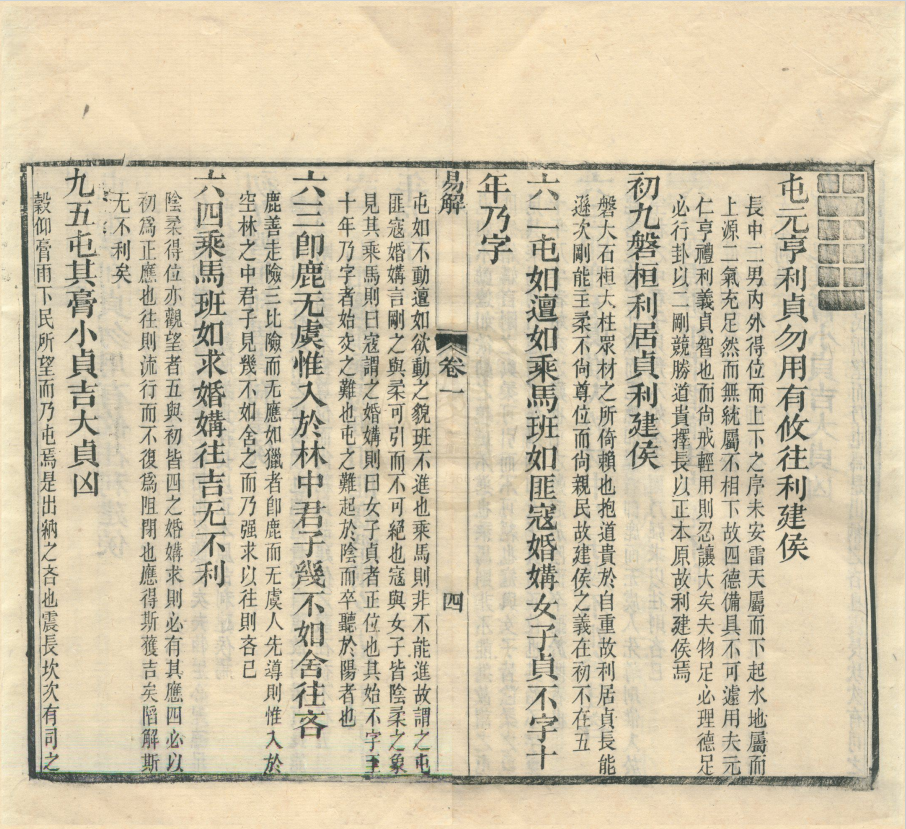 屯元亨利貞勿用有攸往利建侯
長中二男內外得位而上下之序未安雷天屬而下起水地屬而
上源二氣充足然而無統屬不相下故四德備具不可濾用夫元
仁亨禮利義貞智也而尚戒輕用則忍讓大矣夫物足必理德足
必行卦以二剛競勝道貴擇長以正本原故利建侯焉
初九磐桓利居貞利建侯
磐大石桓大柱眾材之所倚賴也抱道貴於自重故利居貞長能
遜次剛能主柔不尚尊位而尚親民故建侯之義在初不在五
六二屯如邅如乘馬班如匪寇婚媾女子貞不字十
年乃字
易解
卷一
四
屯如不動邅如欲動之貌班不進也乘馬則非不能進故謂之屯
匪寇婚媾言剛之與柔可引而不可絕也寇與女子皆陰柔之象
見其乘馬則曰寇謂之婚媾則曰女子貞者正位也其始不字至
十年乃字者始交之難也屯之難起於陰而卒聽於陽者也
六三卽鹿无虞惟入於林中君子幾不如舍往吝
鹿善走險三比險而无應如獵者卽鹿而无虞人先導則惟入於
空林之中君子見幾不如舍之而乃强求以往則吝已
六四乘馬班如求婚媾往吉无不利
陰柔得位亦觀望者五與初皆四之婚媾求則必有其應四必以
初爲正應也往則流行而不復爲阻閉也應得斯獲吉矣陷解斯
无不利矣
九五屯其膏小貞吉大貞凶
穀仰膏雨下民所望而乃屯焉是出納之吝也震長坎次有司之